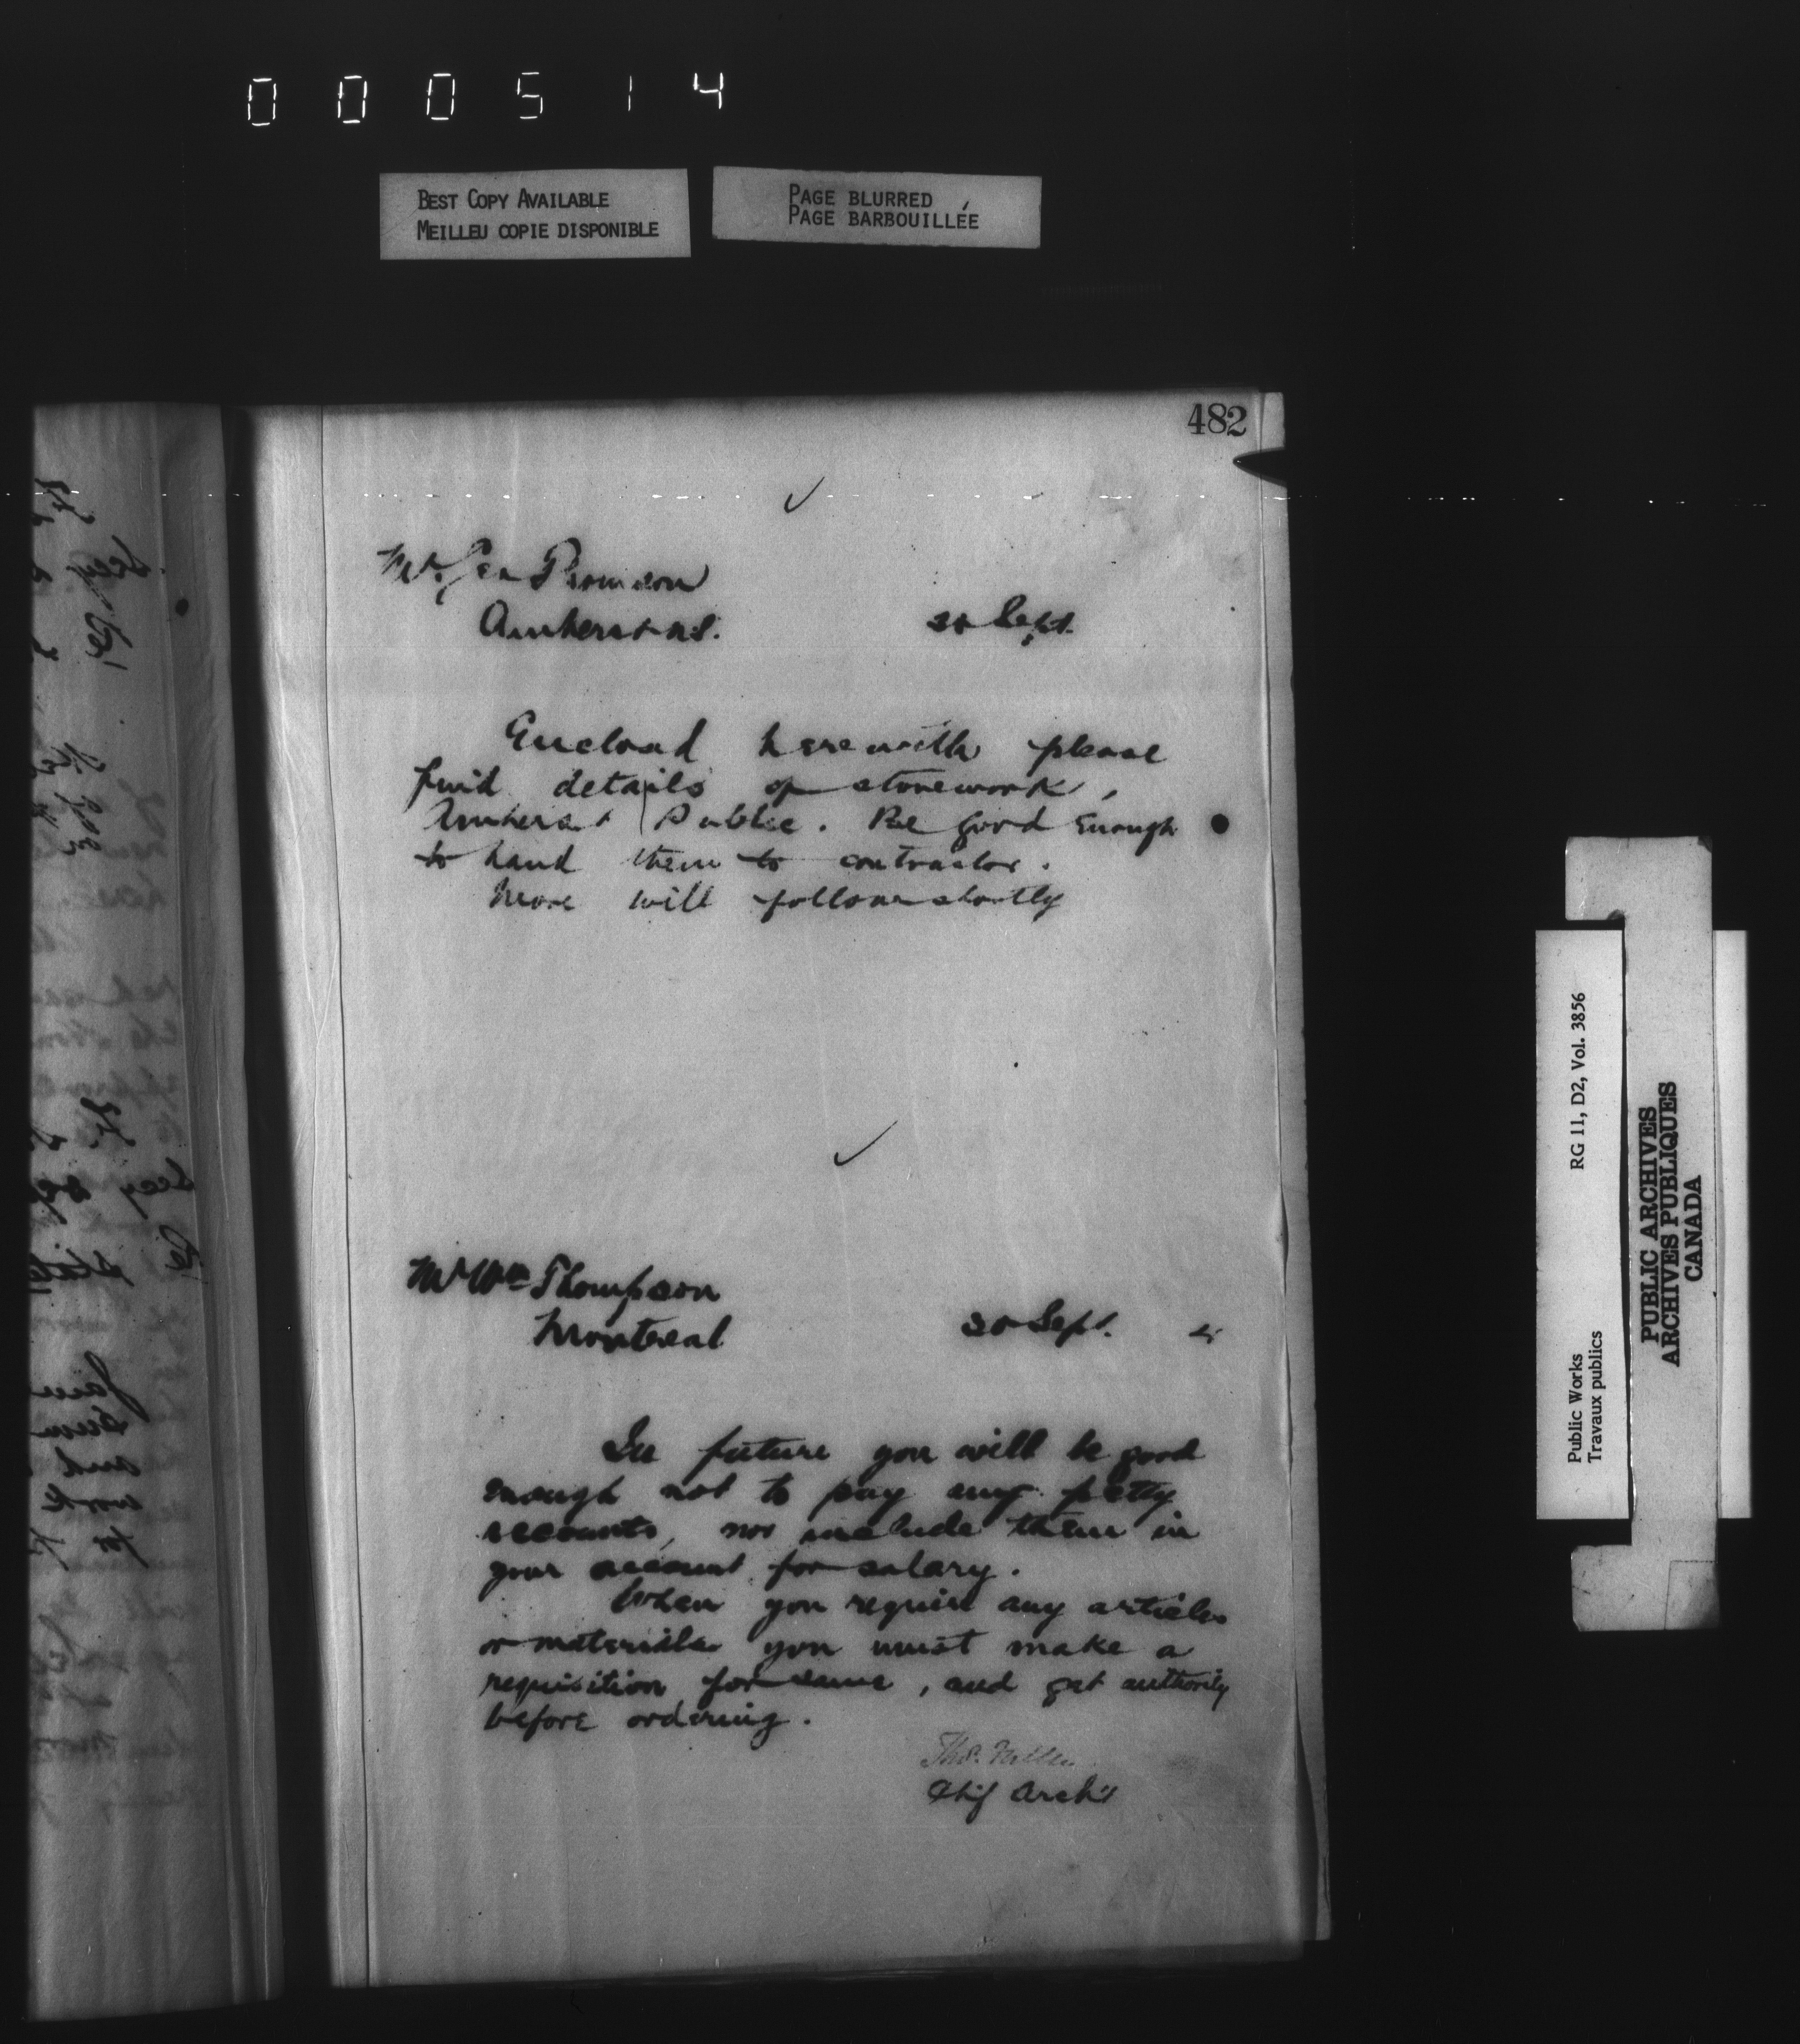 000514
BEST COPY AVAILABLE
MEILLEU COPIE DISPONIBLE
PAGE BLURRED
PAGE BARBOUILLÉE
482
Mr.
Amherst N.S. 20 Sept.
Enclosed herewith please
find details of stonework,
Amherst Public. Be good enough
to hand them to contractor.
More will follow shortly
Mr Wm Thompson
Montreal 20 Sept.
In future you will be good
enough not to pay any petty
accounts, nor include them in
your account for salary.
When you require any articles
or materials you must make a
requisition for same, and get authority
before ordering.
Thos. Fuller
Chif Archt
RG 11, D2, Vol. 3856
Public Works
Travaux publics
PUBLIC ARCHIVES
ARCHIVES PUBLIQUES
CANADA